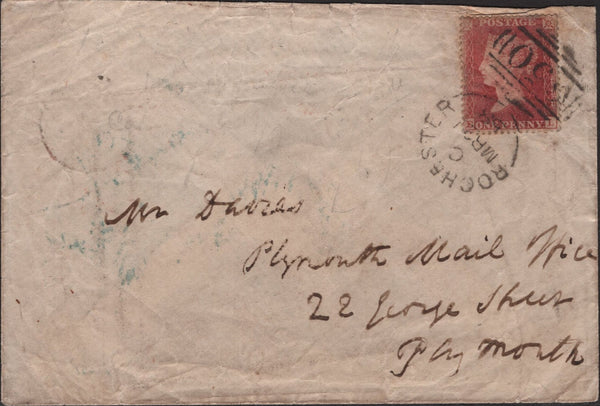 POSTAGE
ONE PENNY
ROCHESTER
C
MR
Mr Davies
Plymouth Mail Office
22 George Street
Plymouth